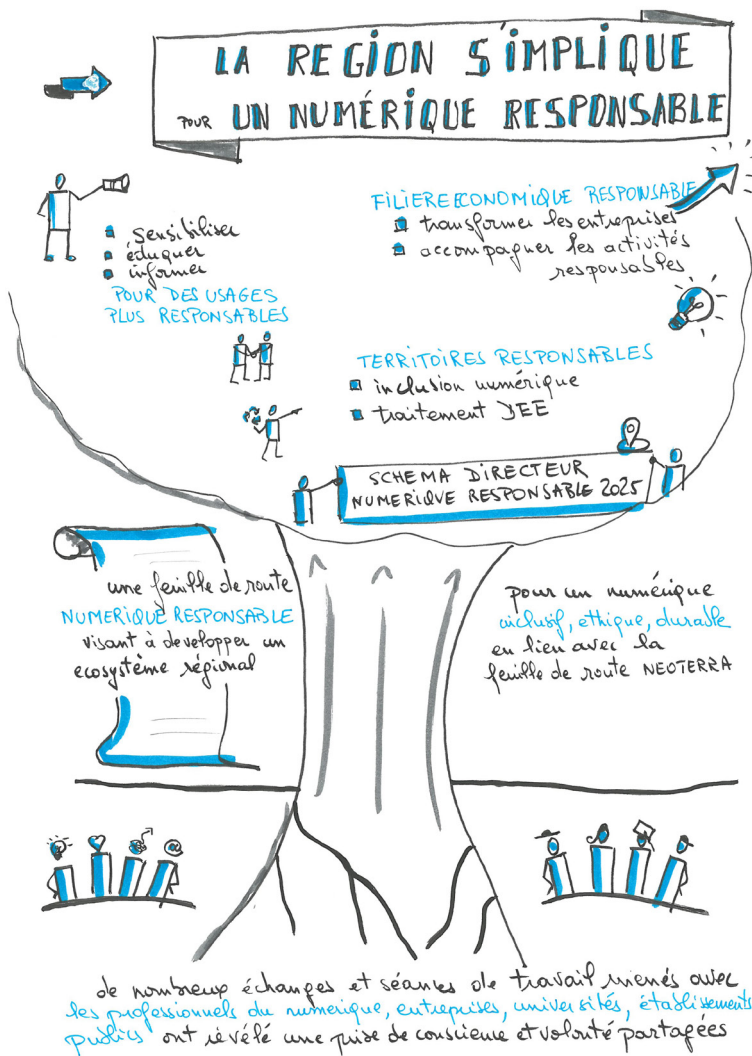 LA REGION S'IMPLIQUE
POUR UN NUMÉRIQUE RESPONSABLE
sensibiliser
éduquer
informer
POUR DES USAGES
PLUS RESPONSABLES
FILIERE ECONOMIQUE RESPONSABLE
transformer les entreprises
accompagner les activités
responsables
TERRITOIRES RESPONSABLES
inclusion numérique
traitement DEE
SCHEMA DIRECTEUR
NUMERIQUE RESPONSABLE 2025
une feuille de route
NUMERIQUE RESPONSABLE
visant à developper un
ecosystème régional
pour un numérique
inclusif, ethique, durable
en lien avec la
feuille de route NEOTERRA
de nombreux échanges et séances de travail menés avec
les professionnels du numerique, entreprises, universités, établissements
publics ont révélé une prise de conscience et volonté partagées